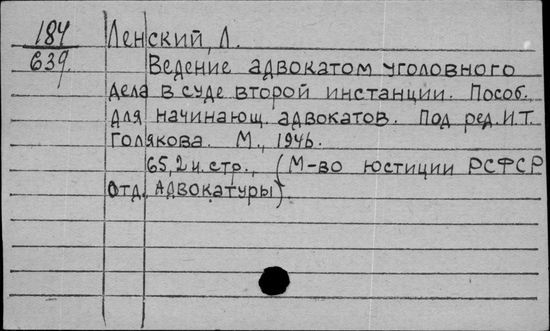 184
639
Ленский, Л.
Ведение адвокатом уголовного
дела в суде второй инстанции. Пособ.
для начинающ. адвокатов. Под ред. И.Т.
Голякова. М., 1946.
65, 2 н. стр., (М-во юстиции РСФСР
Отд. Адвокатуры)